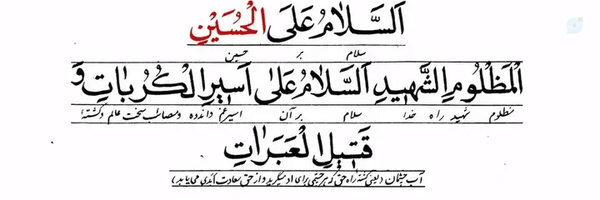 اَلسَّلَامُ عَلَى الْحُسَيْنِ
سلام بر حسین
الْمَظْلُومِ الشَّهِيدِ اَلسَّلَامُ عَلىٰ اَسِيرِ الْكُرُبَاتِ وَ
مظلوم شهید راه خدا سلام بر آن اسیر غم و اندوه و مصائب سخت عالم و کشته
قَتِيلِ الْعَبَرَاتِ
آب چشمان (یعنی کشته راه حق که هر چشمی برای او میگرید و از حق سعادت ابدی می‌یابد)